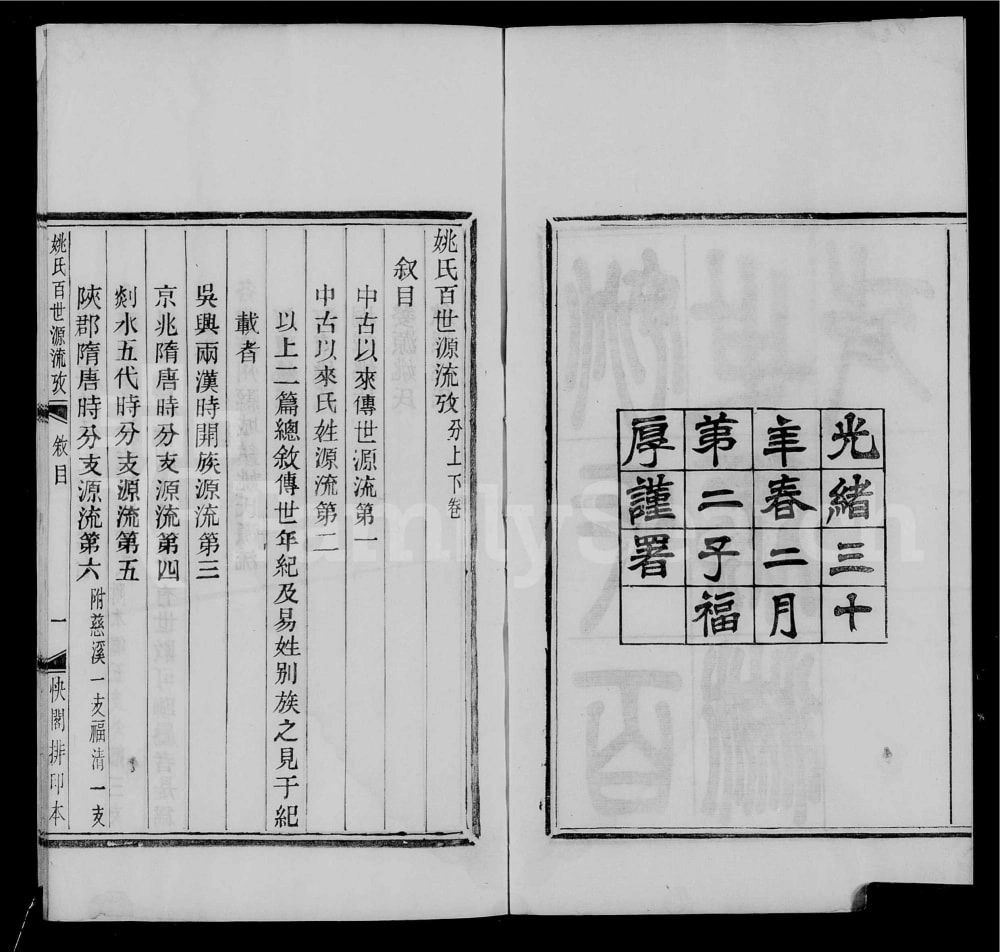 光緒三十
年春二月
第二子福
厚謹署
姚氏百世源流攷 分上下卷
敘目
中古以來傳世源流第一
中古以來氏姓源流第二
以上二篇總敘傳世年紀及易姓別族之見于紀
載者
吳興兩漢時開族源流第三
京兆隋唐時分支源流第四
剡水五代時分支源流第五
陝郡隋唐時分支源流第六 附慈溪一支福清一支
姚氏百世源流攷 敘目 一 快閣排印本